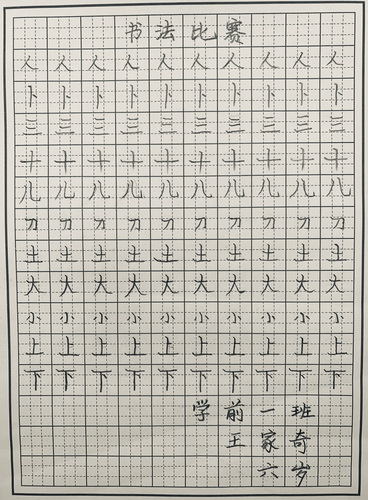 书法比赛
人人人人人人人人人人
卜卜卜卜卜卜卜卜卜卜
三三三三三三三三三三
十十十十十十十十十十
儿儿儿儿儿儿儿儿儿儿
刀刀刀刀刀刀刀刀刀刀
土土土土土土土土土土
大大大大大大大大大大
小小小小小小小小小小
上上上上上上上上上上
下下下下下下下下下下
学前一班
王家奇
六岁